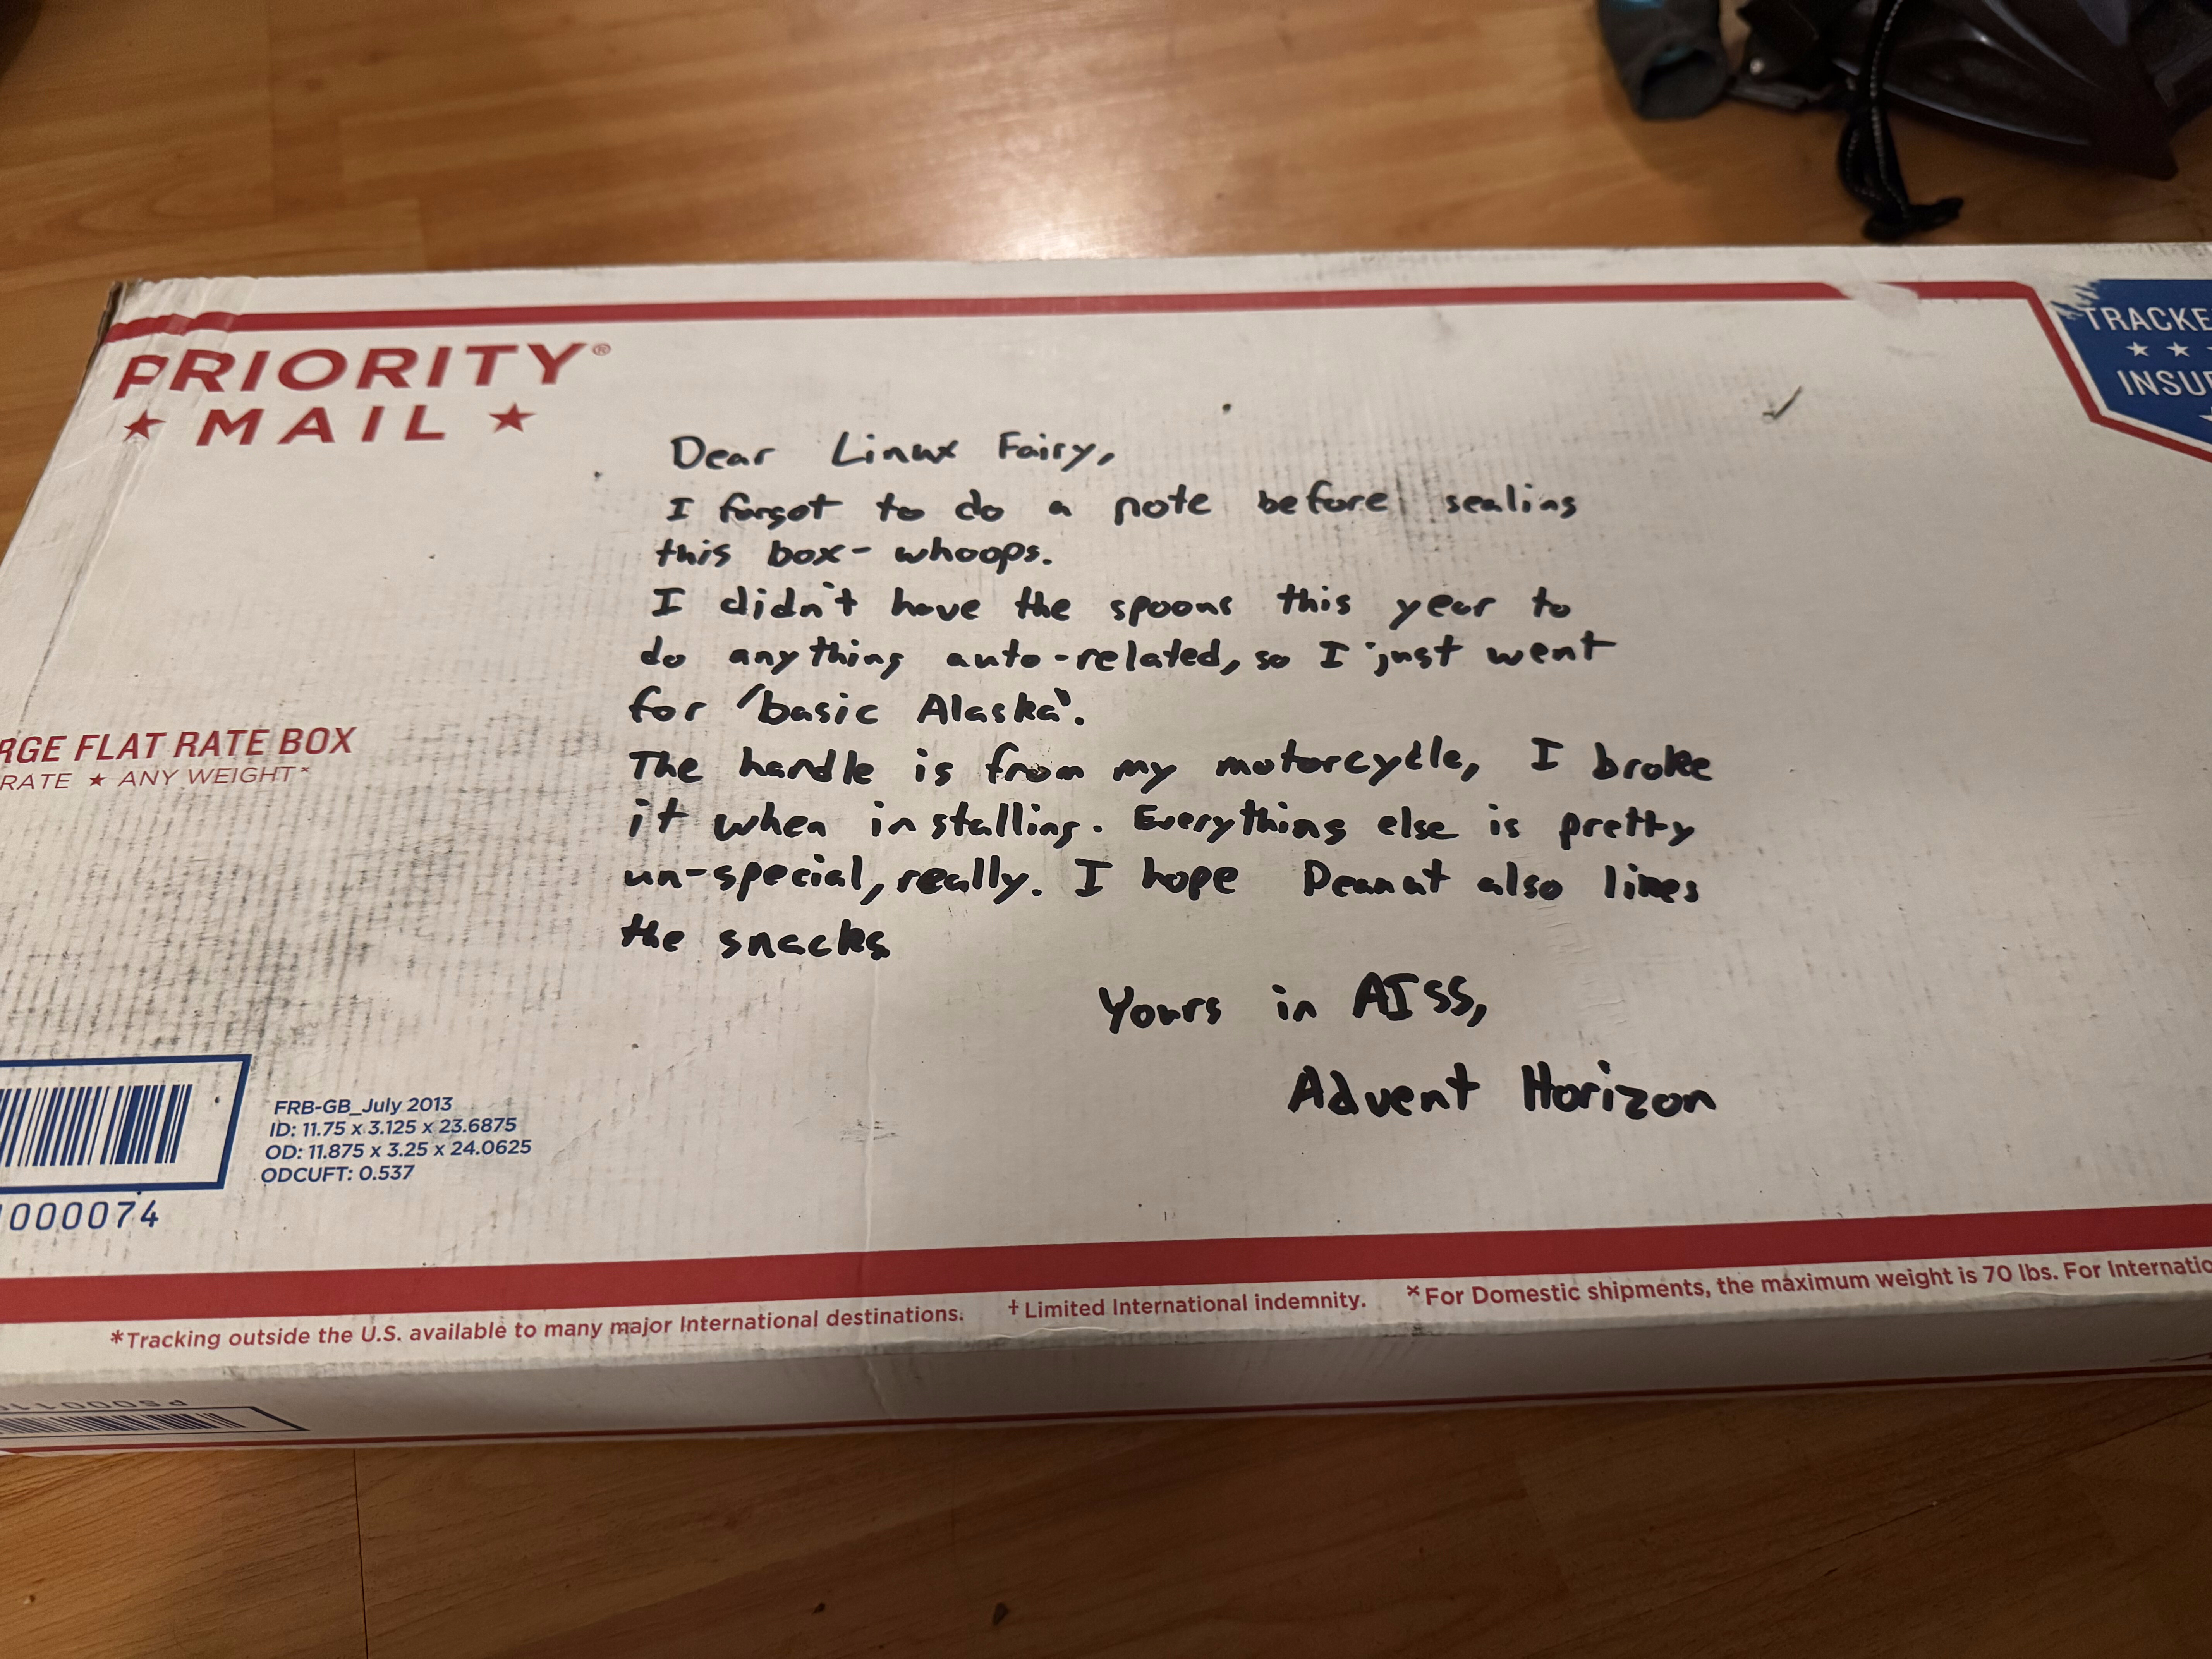 PRIORITY®
★ MAIL ★
TRACKE
★ ★
INSU
Dear Linux Fairy,
I forgot to do a note before sealing
this box- whoops.
I didn't have the spoons this year to
do anything auto-related, so I just went
for 'basic Alaska'.
The handle is from my motorcycle, I broke
it when installing. Everything else is pretty
un-special, really. I hope Peanut also likes
the snacks
Yours in AISS,
Advent Horizon
RGE FLAT RATE BOX
RATE ★ ANY WEIGHT*
FRB-GB_July 2013
ID: 11.75 x 3.125 x 23.6875
OD: 11.875 x 3.25 x 24.0625
ODCUFT: 0.537
000074
*Tracking outside the U.S. available to many major International destinations. † Limited International indemnity. *For Domestic shipments, the maximum weight is 70 lbs. For Internatio